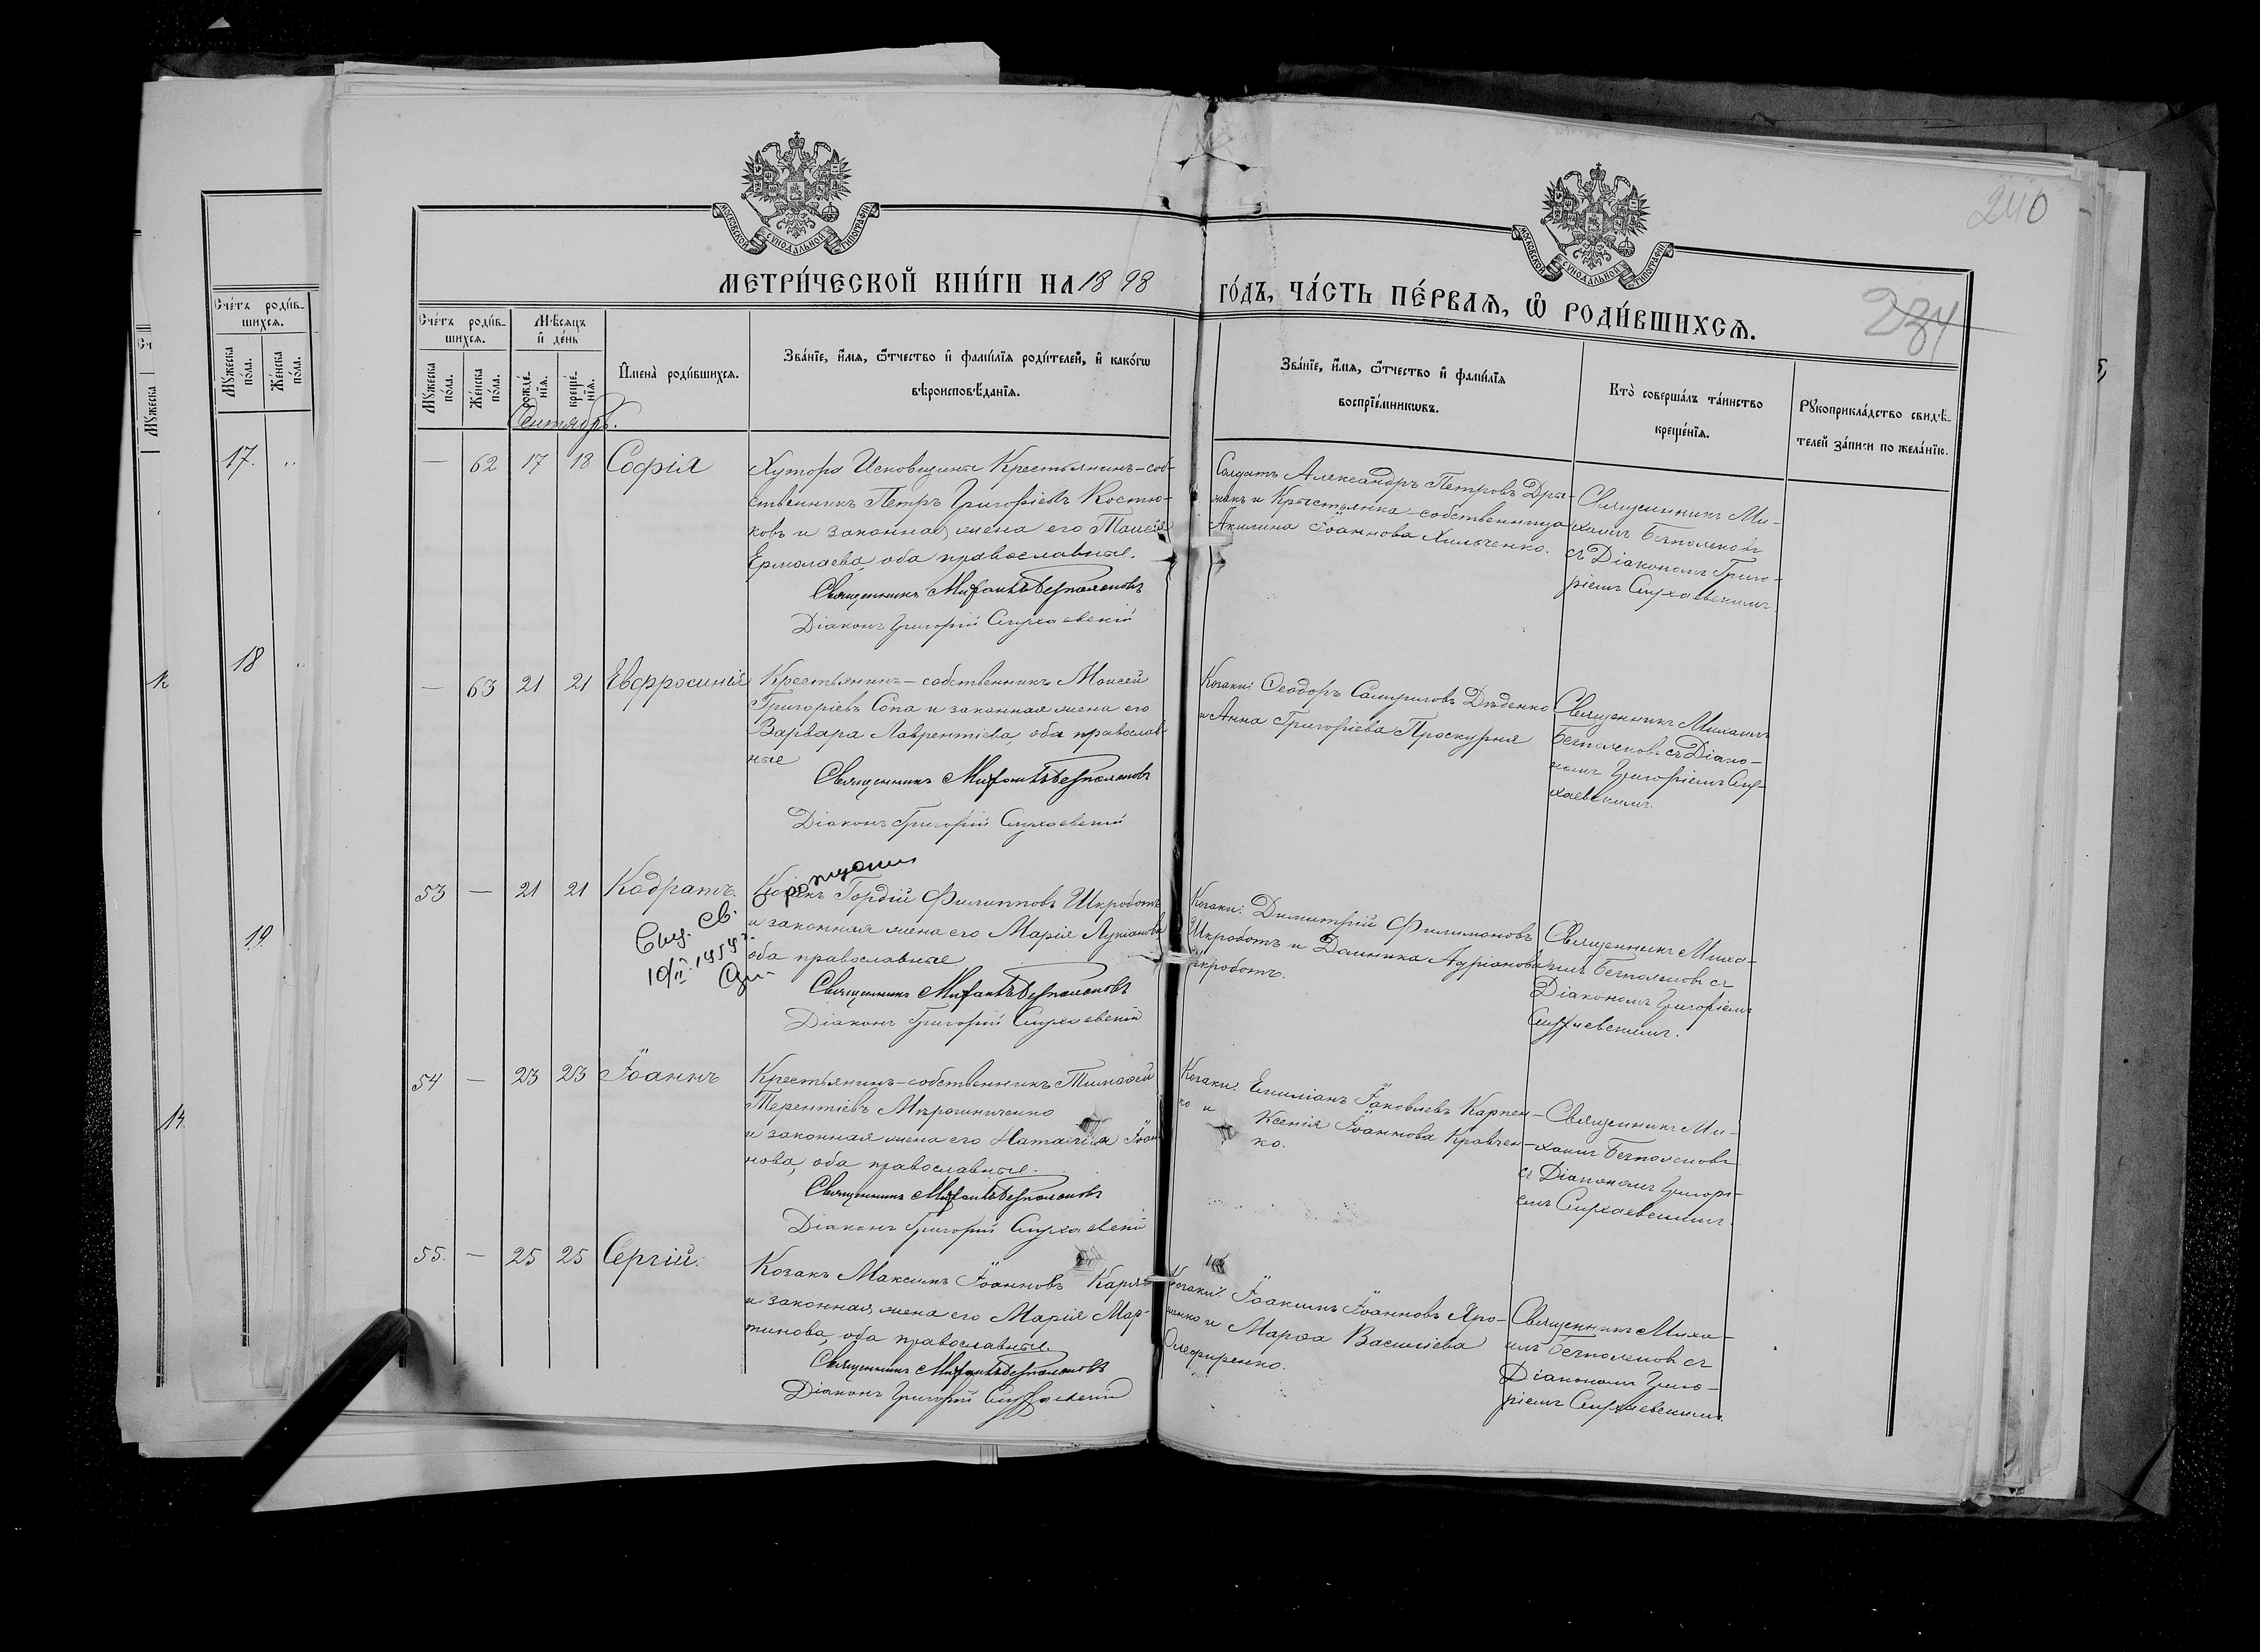 240
МОСКОВСКОЙ СУНОДАЛЬНОЙ ТИПОГРАФІИ
МОСКОВСКОЙ СУНОДАЛЬНОЙ ТИПОГРАФІИ
МЕТРИ́ЧЕСКОЙ КНИ́ГИ НА 1898
ГО́ДЪ, ЧА́СТЬ ПЕ́РВАѦ, Ѡ҆ РОДИ́ВШИХСѦ.
234
Сче́тъ роди́в-
шихсѧ.
Мꙋ́жеска по́ла.
Же́нска по́ла.
Мѣ́сѧцъ и҆ де́нь
рожде́нїѧ.
креще́нїѧ.
И҆мена̀ роди́вшихсѧ.
Зва́нїе, и҆́мѧ, ѻ҆́тчество и҆ фами́лїѧ роди́телей, и҆ како́гѡ
вѣроисповѣ́данїѧ.
Зва́нїе, и҆́мѧ, ѻ҆́тчество и҆ фами́лїѧ
воспрїе́мникѡвъ.
Кто̀ соверша́лъ та́инство
креще́нїѧ.
Рꙋкоприкла́дство свидѣ́-
телей за́писи по жела́нїю.
Сентябрь.
— 62 17 18 Софія
Хутора Исковщины Крестьянинъ-соб-
ственникъ Петръ Григоріевъ Костю-
ковъ и законная жена его Таисія
Ермолаева, оба православные.
Священникъ Михаилъ Безполеновъ
Діаконъ Григорій Слухаевскій
Солдатъ Александръ Петровъ
и Крестьянка-собственница
Акилина Іоаннова Хильченко.
Священникъ Ми-
хаилъ Безполеновъ
съ Діакономъ Григо-
ріемъ Слухаевскимъ.
— 63 21 21 Евфросинія
Крестьянинъ-собственникъ Моисей
Григоріевъ Сопа и законная жена его
Варвара Лаврентіева, оба православ-
ные
Священникъ Михаилъ Безполеновъ
Діаконъ Григорій Слухаевскій
Козаки: Ѳеодоръ Дяденко
и Анна Григоріева Проскурня
Священникъ Михаилъ
Безполеновъ съ Діако-
номъ Григоріемъ Слу-
хаевскимъ.
53 — 21 21 Кодратъ.
Выд. св. о рождении
10/II. 1954 г.
Козакъ Гордій Филипповъ Шкроботъ
и законная жена его Марія Лукіанова
оба православные
Священникъ Михаилъ Безполеновъ
Діаконъ Григорій Слухаевскій
Козаки: Димитрій Филимоновъ
Шкроботъ и Домника Адріанова
Шкроботъ.
Священникъ Миха-
илъ Безполеновъ съ
Діакономъ Григоріемъ
Слухаевскимъ.
54 — 23 23 Іоаннъ
Крестьянинъ-собственникъ Тимоѳей
Терентіевъ Мѣрошниченко
и законная жена его Наталія Іоан-
нова, оба православные.
Священникъ Михаилъ Безполеновъ
Діаконъ Григорій Слухаевскій
Козаки: Емиліанъ Іаковлевъ Карпен-
ко и Ксенія Іоаннова Кравчен-
ко.
Священникъ Ми-
хаилъ Безполеновъ
съ Діакономъ Григорі-
емъ Слухаевскимъ.
55. — 25 25 Сергій.
Козакъ Максимъ Іоанновъ
и законная жена его Марія Мар-
тинова, оба православные.
Священникъ Михаилъ Безполеновъ
Діаконъ Григорій Слухаевскій
Козаки: Іоакимъ Іоанновъ Яро-
шенко и Марѳа Василіева
Олефиренко.
Священникъ Миха-
илъ Безполеновъ съ
Діакономъ Григо-
ріемъ Слухаевскимъ.
Сче́тъ роди́в-
шихсѧ.
Мꙋ́жеска по́ла.
Же́нска по́ла.
17.
18
19
14